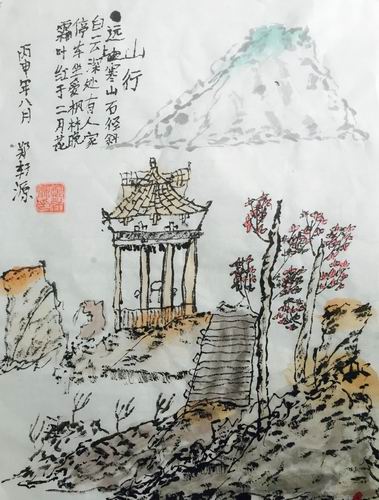 山行
远上寒山石径斜
白云深处有人家
停车坐爱枫林晚
霜叶红于二月花
丙申年八月
郑轩源